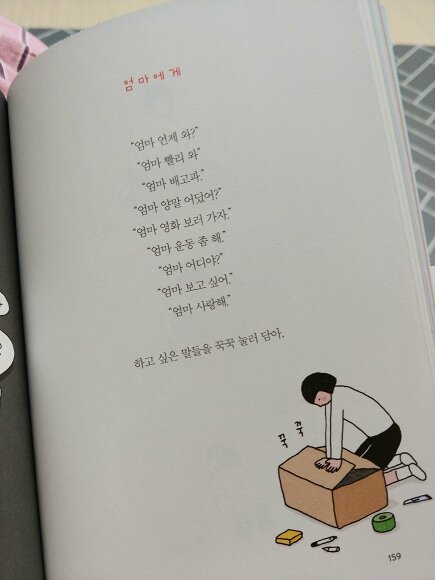 엄마에게
"엄마 언제 와?"
"엄마 빨리 와"
"엄마 배고파."
"엄마 양말 어딨어?"
"엄마 영화 보러 가자."
"엄마 운동 좀 해."
"엄마 어디야?"
"엄마 보고 싶어."
"엄마 사랑해."
하고 싶은 말들을 꾹꾹 눌러 담아.
꾹 꾹
159